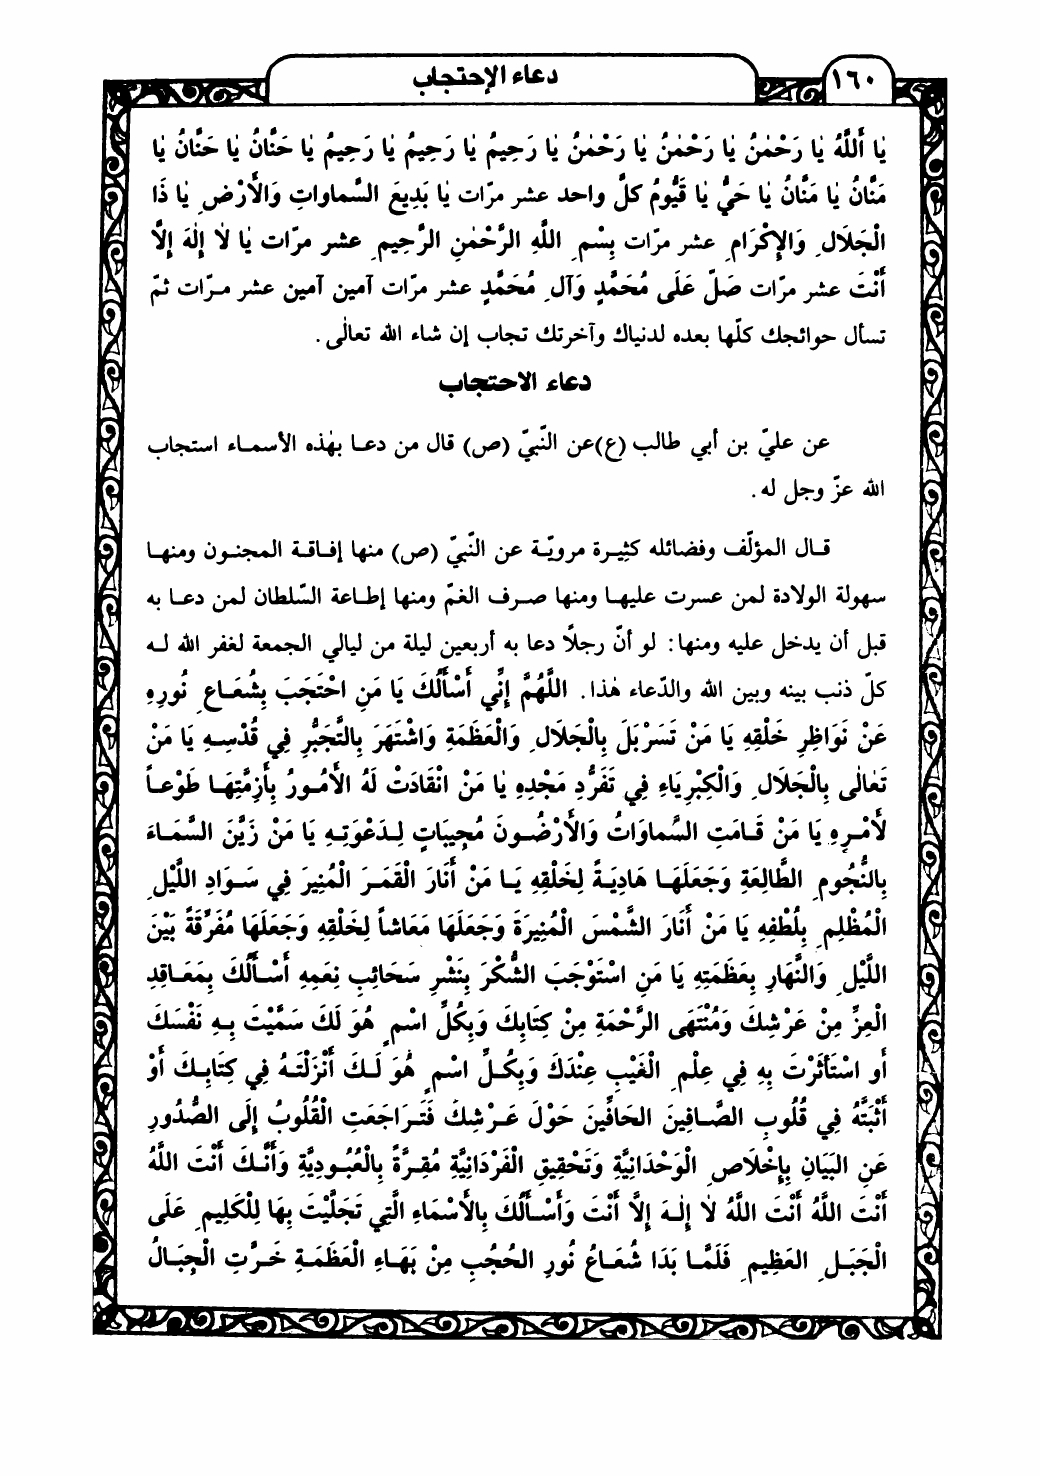 ١٦٠
دعاء الإحتجاب
يٰا أَللَّهُ يٰا رَحْمٰنُ يٰا رَحْمٰنُ يٰا رَحْمٰنُ يٰا رَحِيمُ يٰا رَحِيمُ يٰا رَحِيمُ يٰا حَنَّانُ يٰا حَنَّانُ يٰا
مَنَّانُ يٰا مَنَّانُ يٰا حَيُّ يٰا قَيُّومُ كلّ واحد عشر مرّات يٰا بَدِيعَ السَّماواتِ وَالأَرْضِ يٰا ذَا
الْجَلَالِ وَالإِكْرَامِ عشر مرّات بِسْمِ اللَّهِ الرَّحْمٰنِ الرَّحِيمِ عشر مرّات يٰا لاٰ إِلٰهَ إِلَّا
أَنْتَ عشر مرّات صَلِّ عَلَى مُحَمَّدٍ وَآلِ مُحَمَّدٍ عشر مرّات آمين آمين عشر مرّات ثمّ
تسأل حوائجك كلّها بعده لدنياك وآخرتك تجاب إن شاء الله تعالٰى .
دعاء الاحتجاب
عن عليّ بن أبي طالب (ع)عن النّبيّ (ص) قال من دعا بهٰذه الأسماء استجاب
الله عزّ وجل له .
قال المؤلّف وفضائله كثيرة مرويّة عن النّبيّ (ص) منها إفاقة المجنون ومنها
سهولة الولادة لمن عسرت عليها ومنها صرف الغمّ ومنها إطاعة السّلطان لمن دعا به
قبل أن يدخل عليه ومنها: لو أنّ رجلاً دعا به أربعين ليلة من ليالي الجمعة لغفر الله له
كلّ ذنب بينه وبين الله والدّعاء هٰذا. اللَّهُمَّ إِنِّي أَسْأَلُكَ يَا مَنِ احْتَجَبَ بِشُعَاعِ نُورِهِ
عَنْ نَوَاظِرِ خَلْقِهِ يَا مَنْ تَسَرْبَلَ بِالْجَلَالِ وَالْعَظَمَةِ وَاشْتَهَرَ بِالتَّجَبُّرِ فِي قُدْسِهِ يَا مَنْ
تَعٰالٰى بِالْجَلَالِ وَالْكِبْرِيَاءِ فِي تَفَرُّدِ مَجْدِهِ يٰا مَنْ انْقَادَتْ لَهُ الأُمُورُ بِأَزِمَّتِهَا طَوْعاً
لأَمْرِهِ يَا مَنْ قَامَتِ السَّماوَاتُ وَالأَرْضُونَ مُجِيبَاتٍ لِدَعْوَتِهِ يَا مَنْ زَيَّنَ السَّمَاءَ
بِالنُّجُومِ الطَّالِعَةِ وَجَعَلَهَا هَادِيَةً لِخَلْقِهِ يَا مَنْ أَنَارَ الْقَمَرَ الْمُنِيرَ فِي سَوَادِ اللَّيْلِ
الْمُظْلِمِ بِلُطْفِهِ يَا مَنْ أَنَارَ الشَّمْسَ الْمُنِيرَةَ وَجَعَلَهَا مَعَاشاً لِخَلْقِهِ وَجَعَلَهَا مُفَرِّقَةً بَيْنَ
اللَّيْلِ وَالنَّهَارِ بِعَظَمَتِهِ يَا مَنِ اسْتَوْجَبَ الشُّكْرَ بِنَشْرِ سَحَائِبِ نِعَمِهِ أَسْأَلُكَ بِمَعَاقِدِ
الْعِزِّ مِنْ عَرْشِكَ وَمُنْتَهَى الرَّحْمَةِ مِنْ كِتَابِكَ وَبِكُلِّ اسْمٍ هُوَ لَكَ سَمَّيْتَ بِهِ نَفْسَكَ
أَو اسْتَأْثَرْتَ بِهِ فِي عِلْمِ الْغَيْبِ عِنْدَكَ وَبِكُلِّ اسْمٍ هُوَ لَكَ أَنْزَلْتَهُ فِي كِتَابِكَ أَوْ
أَثْبَتَّهُ فِي قُلُوبِ الصَّافِينَ الحَافِّينَ حَوْلَ عَرْشِكَ فَتَرَاجَعَتِ الْقُلُوبُ إِلَى الصُّدُورِ
عَنِ البَيَانِ بِإِخْلَاصِ الْوَحْدَانِيَّةِ وَتَحْقِيقِ الْفَرْدَانِيَّةِ مُقِرَّةً بِالْعُبُودِيَّةِ وَأَنَّكَ أَنْتَ اللَّهُ
أَنْتَ اللَّهُ أَنْتَ اللَّهُ لاٰ إِلٰهَ إِلَّا أَنْتَ وَأَسْأَلُكَ بِالأَسْمَاءِ الَّتِي تَجَلَّيْتَ بِهَا لِلْكَلِيمِ عَلَى
الْجَبَلِ العَظِيمِ فَلَمَّا بَدَا شُعَاعُ نُورِ الحُجُبِ مِنْ بَهَاءِ الْعَظَمَةِ خَرَّتِ الْجِبَالُ